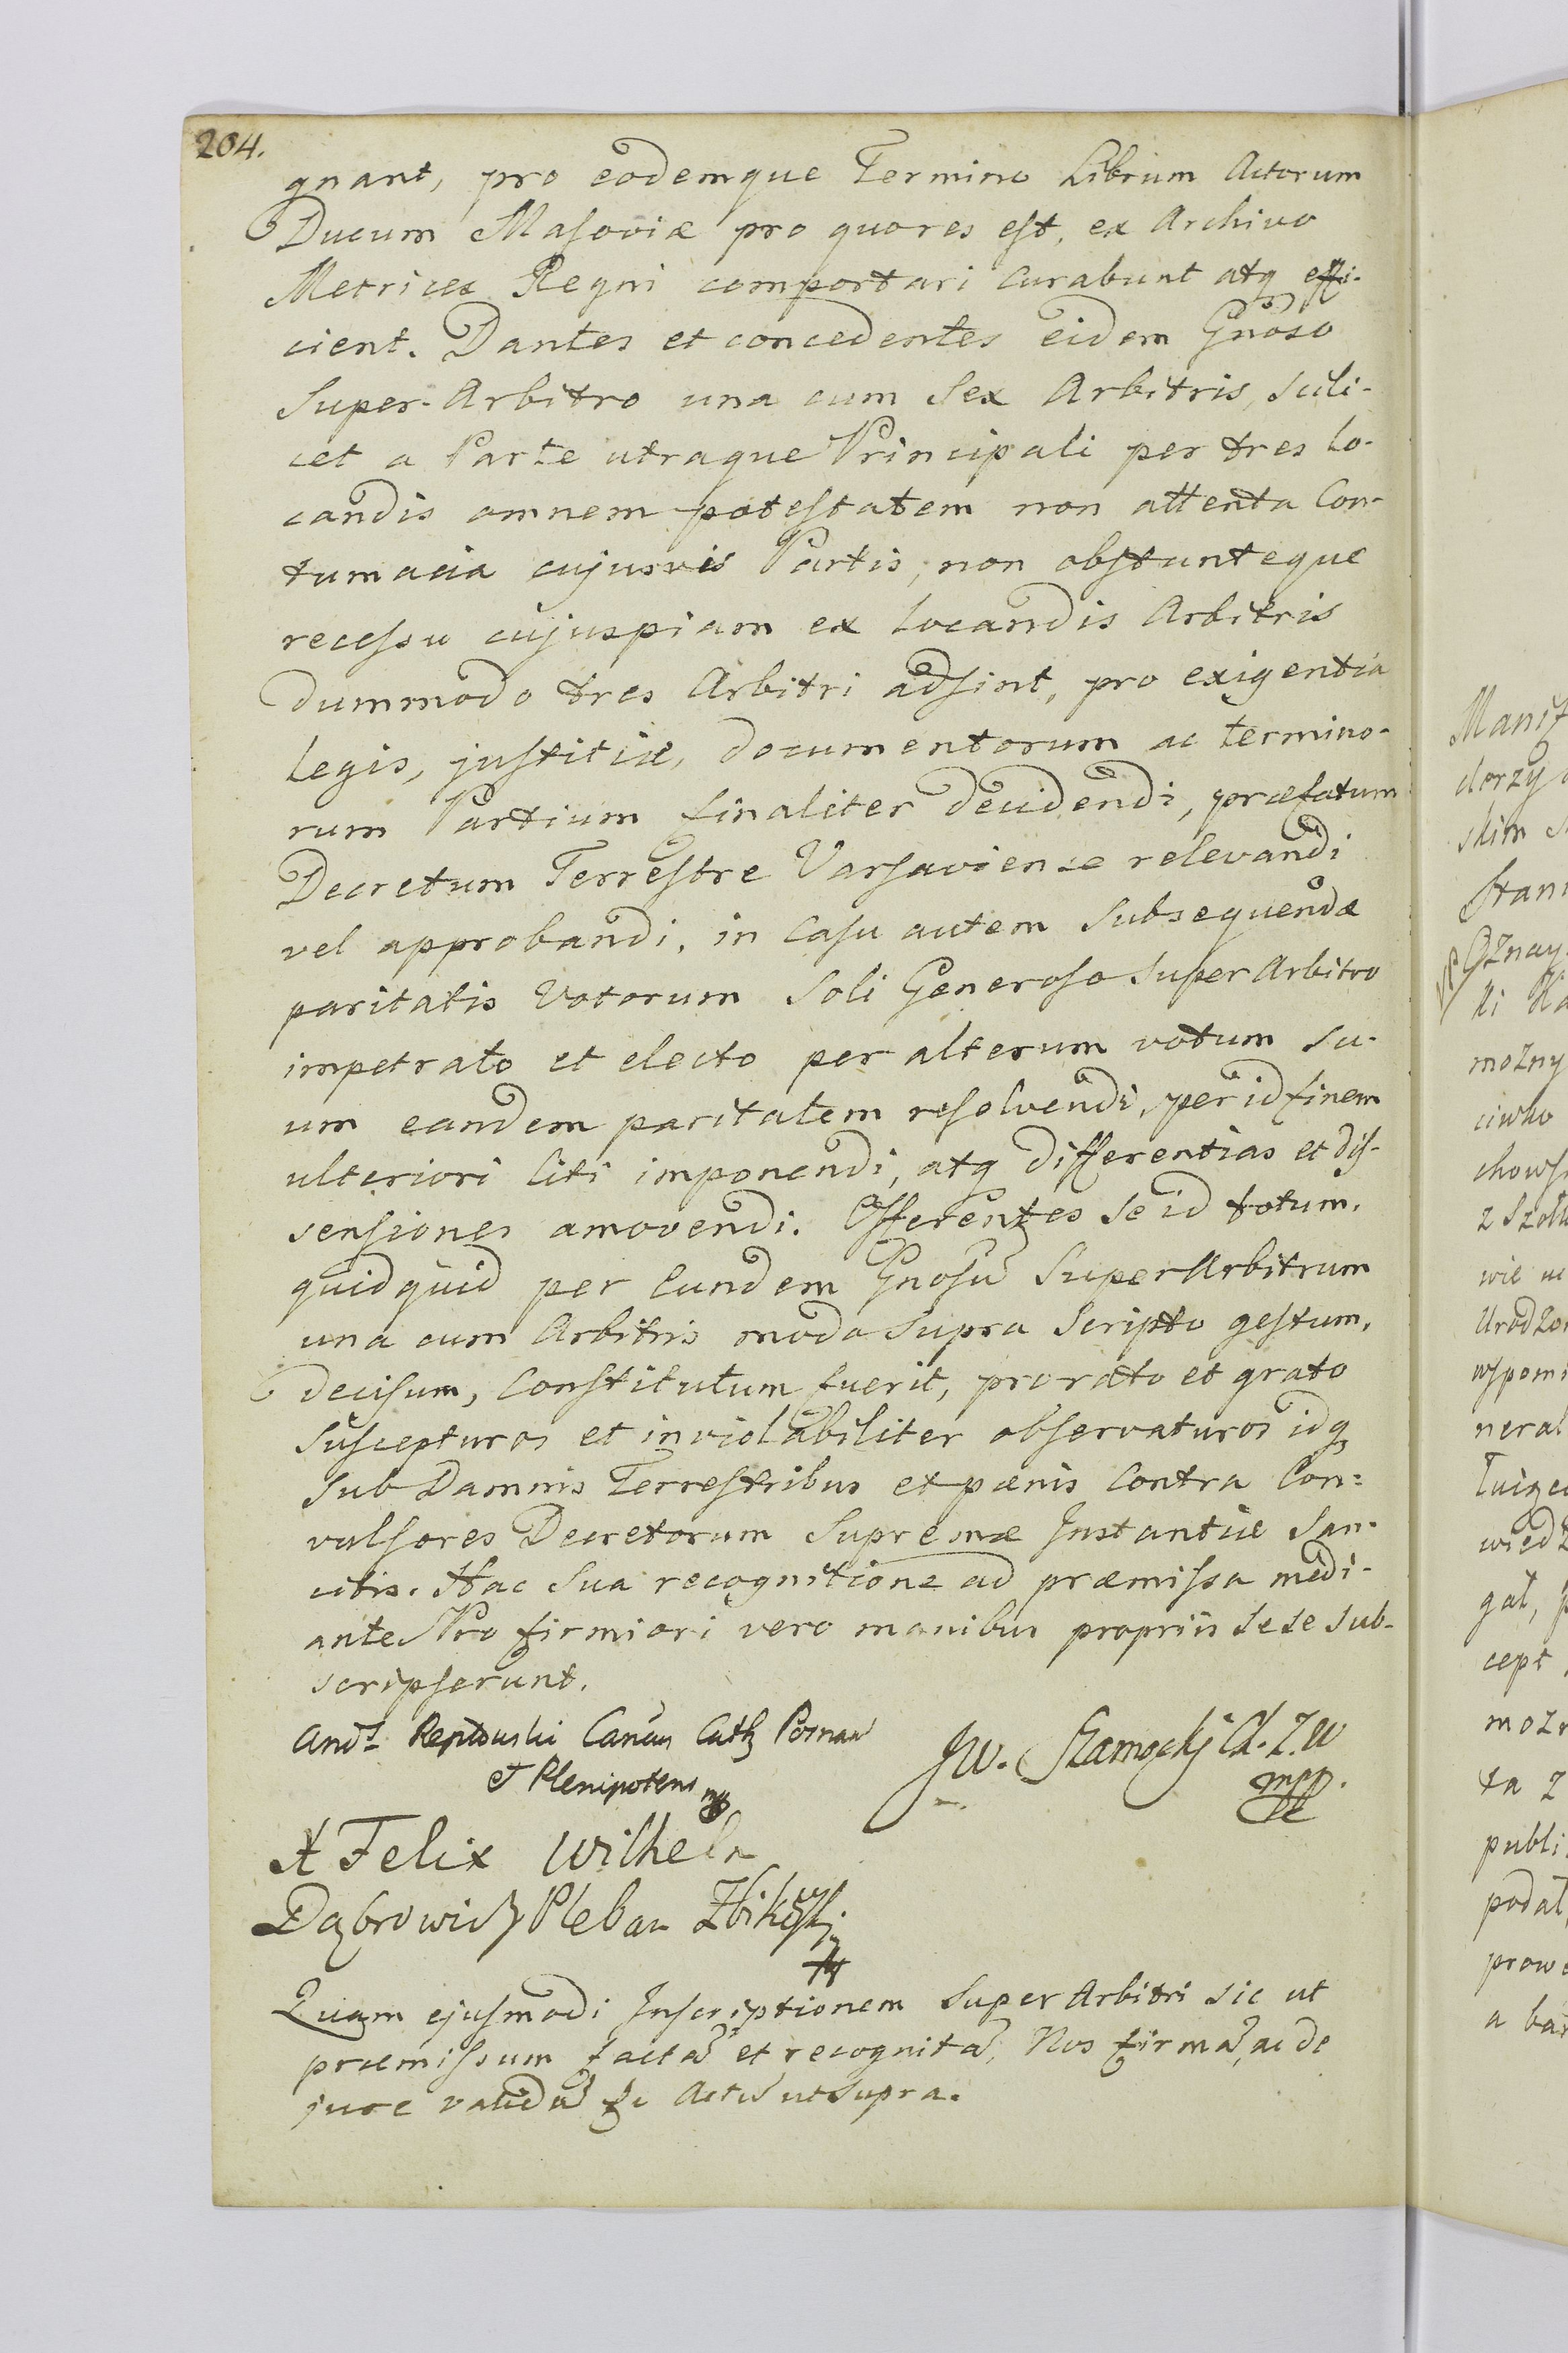 204.
gnant, pro eodemque Termino Librum Actorum
Ducum Masoviæ pro quo res est, ex Archivo
Metrices Regni comportari curabunt atq effi-
cient. Dantes et concedentes eidem Gnoso
Super-Arbitro una cum Sex Arbitris, scili-
cet a Parte utraque Principali per tres lo-
candis omnem potestatem non attenta Con-
tumacia cujusvis Partis, non obstanteque
recessu cujuspiam ex locandis Arbitris
dummodo tres Arbitri adsint, pro exigentia
legis, justitiæ, documentorum ac termino-
rum Partium finaliter decidendi, præfatum
Decretum Terrestre Varsaviense relevandi
vel approbandi, in casu autem subsequendæ
paritatis Votorum Soli Generoso Super Arbitro
impetrato et electo per alterum votum su-
um eandem paritatem resolvendi, per id finem
ulteriori liti imponendi, atq differentias et dis-
sensiones amovendi. Offerentes se id totum,
quidquid per Eundem Gnosu Super Arbitrum
una cum Arbitris modo supra scripto gestum,
decisum, Constitutum fuerit, pro rato et grato
suscepturos et inviolabiliter observaturos idq
sub Damnis Terrestribus et pænis contra Con=
vulsores Decretorum Supremæ Instantiæ san-
citis. Hac sua recognitione ad præmissa medi-
ante Pro firmiori vero manibus propriis sese sub-
scripserunt.
And. Reptowski Canus Cath Posnan
et Plenipotens mp
Jw. Szamocki Ch. Z. W
mpp.
X Felix Wilhelm
Dąbrowicz Pleban Zbikowski
Quam ejusmodi Inscriptionem Super Arbitri sic ut
præmissum facta et recognita, Nos firma, ac de
jure valida Actu ut supra.
Manif
derzy
skim
Stani
Oznay
ki
mozny
ciwko
chowsk
z Szoł
wie
Urodzon
wspomi
neral
Tuize
wiedz
gał,
cept
mozn
ta z
publi
podał,
prow
a bar